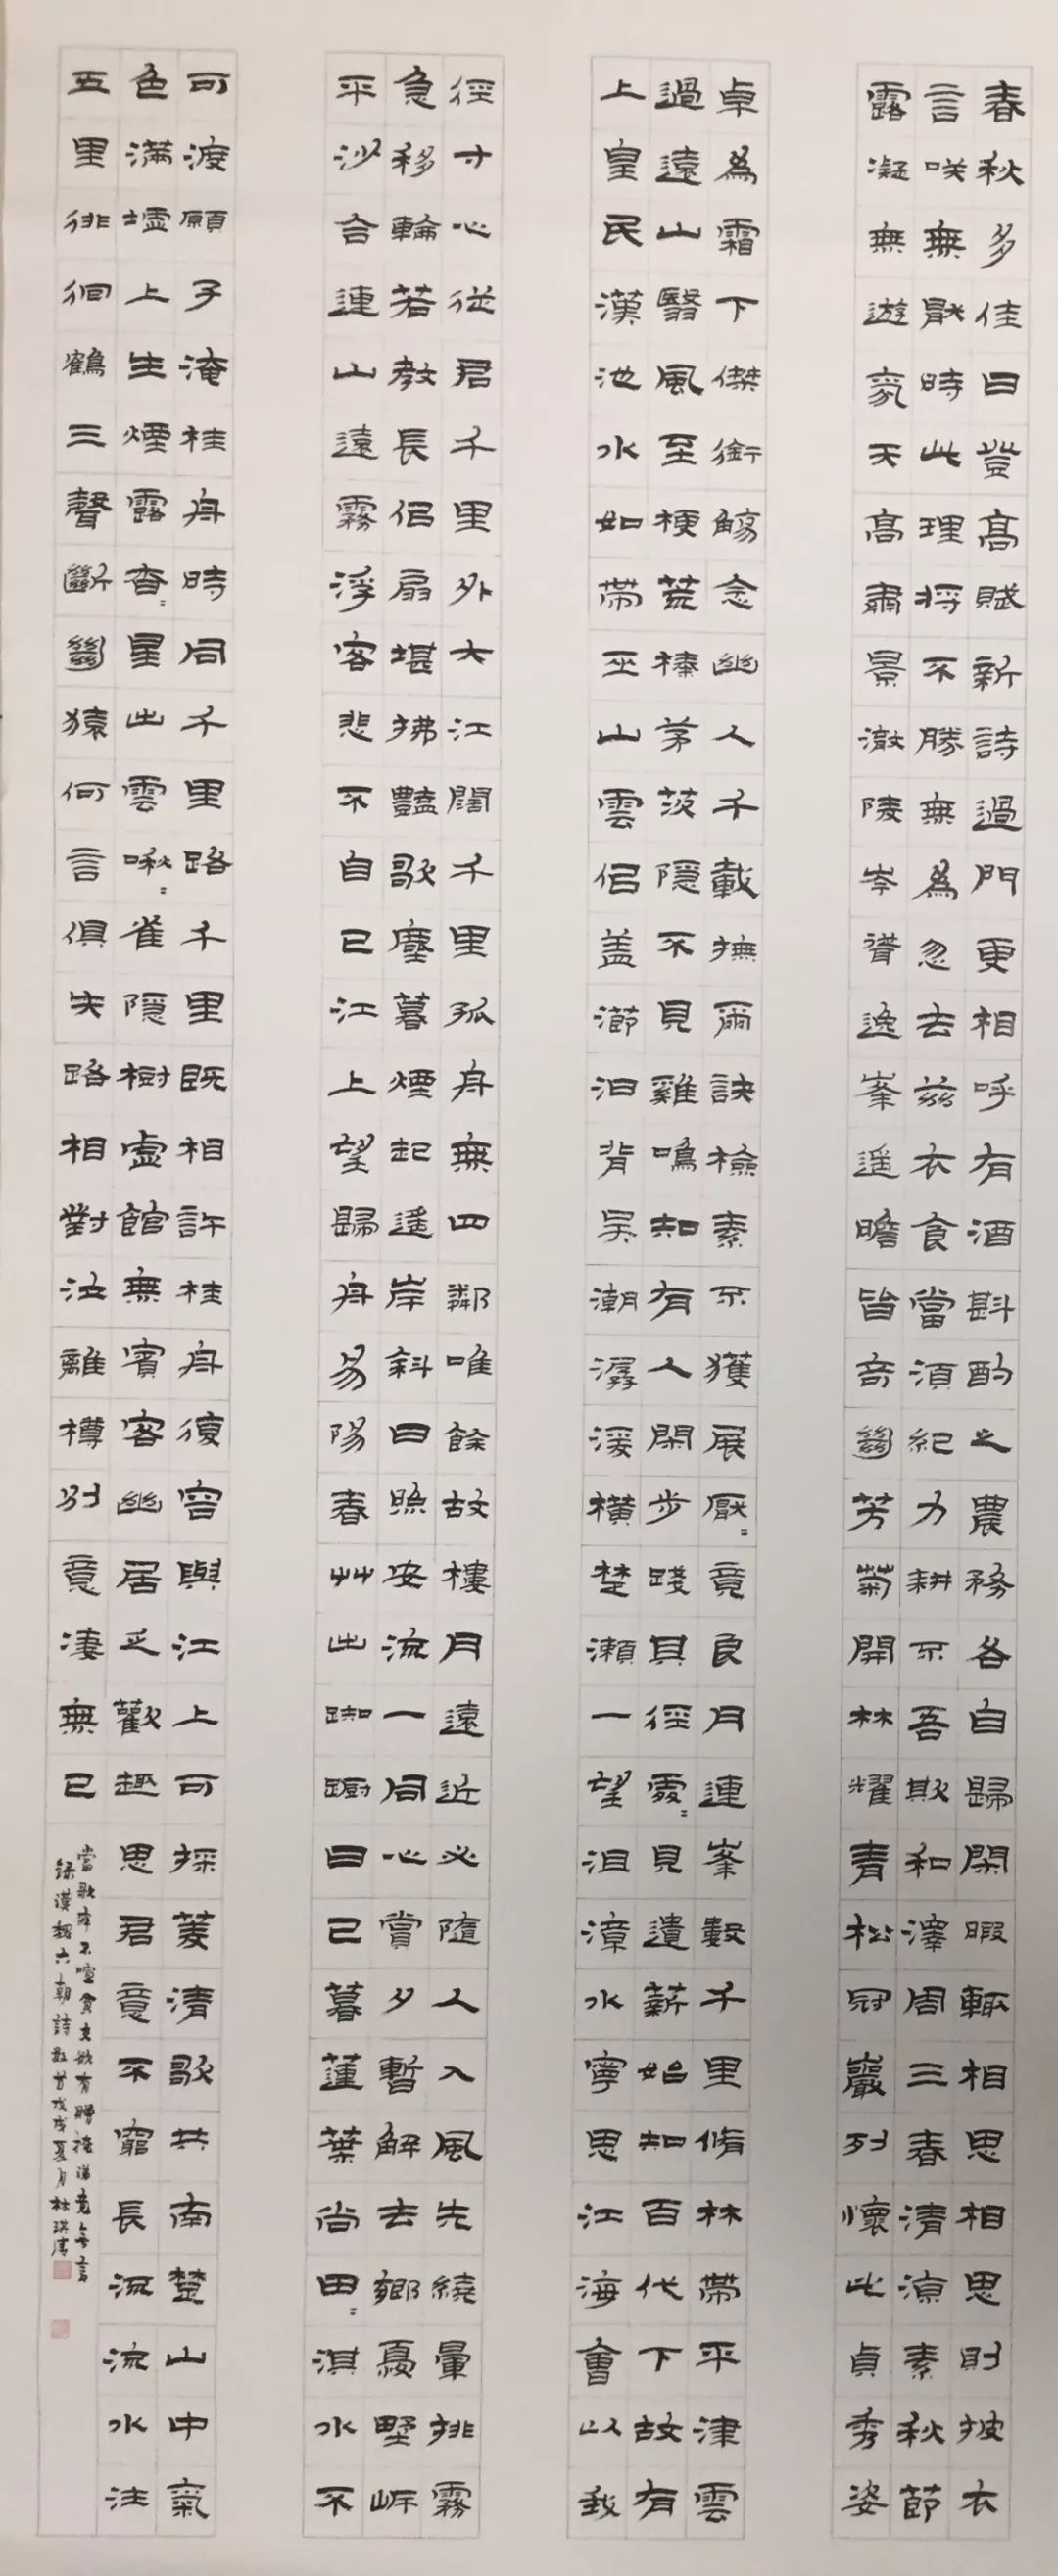 春秋多佳日豋高賦新詩過門更相呼有酒斟酌之農務各自歸閑暇輒相思相思則披衣
言咲無厭時此理將不勝無為忽去茲衣食當須紀力耕不吾欺和澤周三春清涼素秋節
露凝無遊氛天高肅景澈陵岑聳逸峯遥瞻皆奇絶芳菊開林耀青松冠巖列懷此貞秀姿
卓為霜下傑銜觴念幽人千載撫爾訣檢素不獲展厭=竟良月連峯數千里脩林帶平津雲
過遠山翳風至梗荒榛茅茨隱不見雞鳴知有人閑步踐其徑處=見遺薪始知百代下故有
上皇民漢池水如帶巫山雲侣盖瀄汩背吴潮潺湲橫楚瀨一望沮漳水寧思江海會以我
徑寸心從君千里外大江闊千里孤舟無四鄰唯餘故樓月遠近必隨人入風先繞暈排霧
急移輪若教長侣扇堪拂豔歌塵暮煙起遥岸斜日照安流一同心賞夕暫解去鄉憂野岍
平沙合連山遠霧浮客悲不自已江上望歸舟易陽春艸出踟躕日已暮蓮葉尚田=淇水不
可渡願子淹桂舟時同千里路千里既相許桂舟復容與江上可採菱清歌共南楚山中氣
色滿墟上生煙露杳=星出雲啾=雀隱樹虛館無賓客幽居乏歡趣思君意不窮長流流水注
五里徘徊鶴三聲斷絶猿何言俱失路相對泣離樽別意凄無已
當歌寂不喧貧交欲有贈掩涕竟無言
錄漢魏六朝詩數首戊戌夏月杜琪